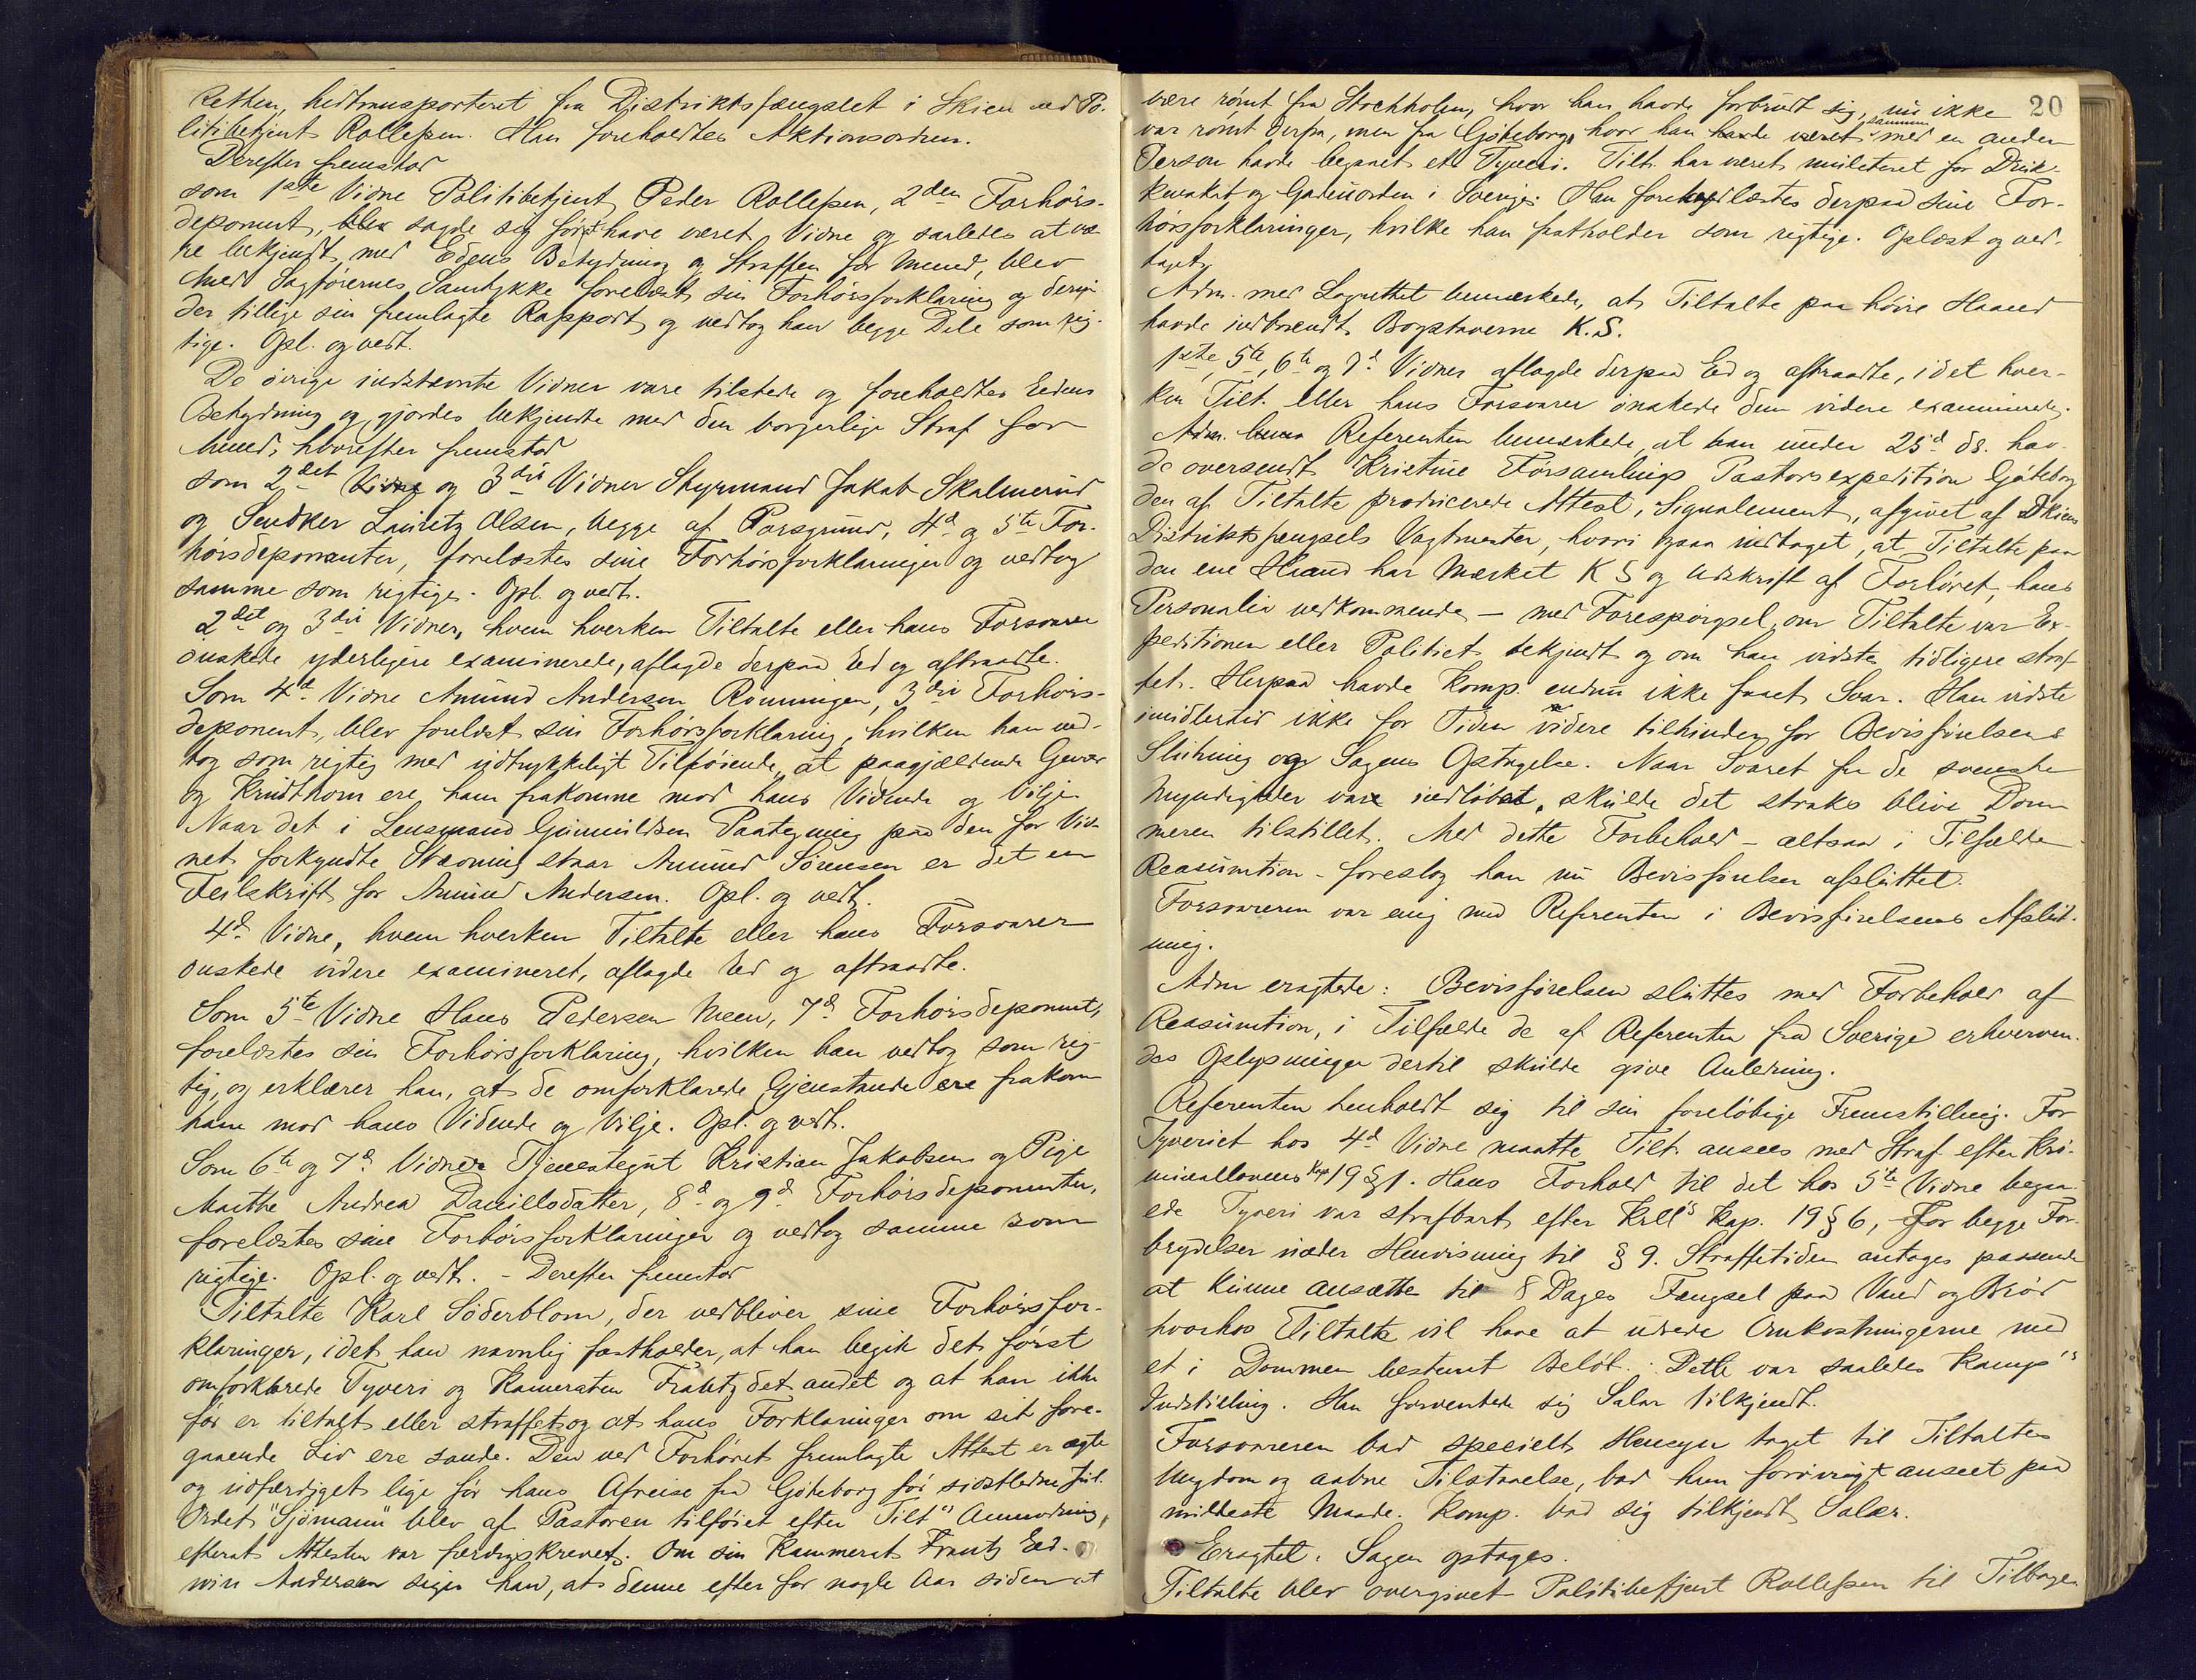 Retten, hidtransporteret fra Distriktsfængslet i Skien ved Po-
litibetjent Rollefsen. Han foreholdtes Aktionsordren.
Derefter fremstod
som 1ste Vidne Politibetjent Peder Rollefsen, 2den Forhörs-
deponent, blev sagde sig först have været Vidne og saaledes at væ-
re bekjendt med Edens Betydning og Straffen for Mened, blev
med Sagförernes Samtykke forelæst sin Forhörsforklaring og derhos
der tillige sin fremlagte Rapport og vedtog han begge Dele som rig-
tige. Opl. og vedt.
De övrige indstævnte Vidner vare tilstede og foreholdtes Eedens
Betydning og gjordes bekjendte med den borgerlige Straf for
Mened; hvorefter fremstod
som 2det Vidne og 3die Vidner Styrmand Jakob Skalmerud
og Snedker Lauritz Olsen, begge af Porsgrund, 4de og 5te For-
hörsdeponenter, forelæstes sine Forhörsforklaringer og vedtog
samme som rigtige. Opl. og vedt.
2det og 3die Vidner, hvem hverken Tiltalte eller hans Forsvarer
önskede yderligere examinerede, aflagde derpaa Ed og aftraadte.
Som 4de Vidne Amund Andersen Rönningen, 3die Forhörs-
deponent, blev forelæst sin Forhörsforklaring, hvilken han ved-
tog som rigtig med udtrykkeligt Tilföiende, at paagjældende Gevær
og Krudthorn ere ham frakomne mod hans Vidende og Vilje
Naar det i Lensmand Gunnuldsen Paategning paa den for Vid-
net forkyndte Stævning staar Amund Sörensen er det en
Feilskrift for Amund Andersen. Opl. og vedt.
4de Vidne, hvem hverken Tiltalte eller hans Forsvarer
önskede videre examineret, aflagde Ed og aftraadte.
Som 5te Vidne Hans Pedersen Meen, 7de Forhörsdeponent,
forelæstes sin Forhörsforklaring, hvilken han vedtog som rig-
tig, og erklærer han, at de omforklarede Gjenstande ere frakom
ham mod hans Vidende og Vilje. Opl. og vedt.
Som 6te og 7de Vidner Tjenestegut Kristian Jakobsen og Pige
Marthe Andrea Danielsdatter, 8de og 9de Forhörsdeponenter,
forelæstes sine Forhörsforklaringer og vedtog samme som
rigtige. Opl. og vedt. - Derefter fremstod
Tiltalte Karl Söderblom, der vedbliver sine Forhörsfor-
klaringer, idet han navnlig fastholder, at han begik det först
omforklarede Tyveri og Kameraten Frantz det andet og at han ikke
för er tiltalt eller straffet og at hans Forklaringer om sit fore-
gaaende Liv ere sande. Den ved Forhöret fremlagte Attest er ægte
og udfærdiget lige för hans Afreise fra Göteborg för sidstledne Jul.
Ordet "Sjömann" blev af Pastoren tilföiet efter Tilt's Anmodning,
efterat Attesten var færdigskrevet. Om sin Kammerat Frantz Ed-
win Andersen siger han, at denne efter for nogle Aar siden at
20
være römt fra Stockholm, hvor han havde forbrudt sig, nu ikke
var römt derfra, men fra Göteborg, hvor han havde været sammen med en anden
Person havde begaaet et Tyveri. Tilt. har været mulcteret for Druk-
kenskab og Gadeuorden i Sverige. Han forelæstes derpaa sine For-
hörsforklaringer, hvilke han fastholder som rigtige. Oplæst og ved-
taget.
Adm. med Lagrettet bemærkede, at Tiltalte paa höire Haand
havde indbrændt Bogstaverne K.S.
1ste, 5te, 6te og 7de Vidner aflagde derpaa Ed og aftraadte, idet hver-
ken Tilt. eller hans Forsvarer önskede dem videre examinerede.
Adm. Referenten bemærkede, at han under 25de ds. hav-
de oversendt Kristine Forsamlings Pastorsexpedition Göteborg
den af Tiltalte producerede Attest, Signalement, afgivet af Skiens
Distriktsfængsels Vagtmester, hvori ogsaa indtaget, at Tiltalte paa
den ene Haand har Mærket K S og Udskrift af Forhöret, hans
Personalia vedkommende - med Forespörgsel, om Tiltalte var Ex-
peditionen eller Politiet bekjendt og om han vidstes tidligere straf-
fet. Herpaa havde Komp. endnu ikke faaet Svar. Han vidste
imidlertid ikke for Tiden videre tilhinder for Bevisförelsens
Slutning og Sagens Optagelse. Naar Svaret fra de svenske
Myndigheder var indlöbet, skulde det straks blive Dom-
meren tilstillet. Med dette Forbehold - altsaa i Tilfælde
Reasumtion - foreslog han nu Bevisförelsen afsluttet.
Forsvareren var enig med Referenten i Bevisförelsens Afslut-
ning.
Adm eragtede: Bevisförelsen sluttes med Forbehold af
Reasumtion, i Tilfælde de af Referenten fra Sverige erhverven-
des Oplysninger dertil skulde give Anledning.
Referenten henholdt sig til sin foreløbige Fremstilling. For
Tyveriet hos 4de Vidne maatte Tilt. ansees med Straf efter Kri-
minallovens Kap 19 § 1. Hans Forhold til det hos 5te Vidne begaa-
ede Tyveri var strafbart efter Krll's Kap. 19 § 6, For begge For-
brydelser under Henvisning til § 9. Straffetiden antages passende
at kunne ansættes til 8 Dages Fængsel paa Vand og Bröd
hvorhos Tiltalte vil have at udrede Omkostningerne med
et i Dommen bestemt Belöb. Dette var saaledes Komp's
Indstilling. Han forventede sig Salær tilkjendt.
Forsvareren bad specielt Hensyn taget til Tiltaltes
Ungdom og aabne Tilstaaelse, bad ham forövrigt anseet paa
mildeste Maade. Komp. bad sig tilkjendt Salær.
Eragtet: Sagen optages.
Tiltalte blev overgivet Politibetjent Rollefsen til Tilbage-